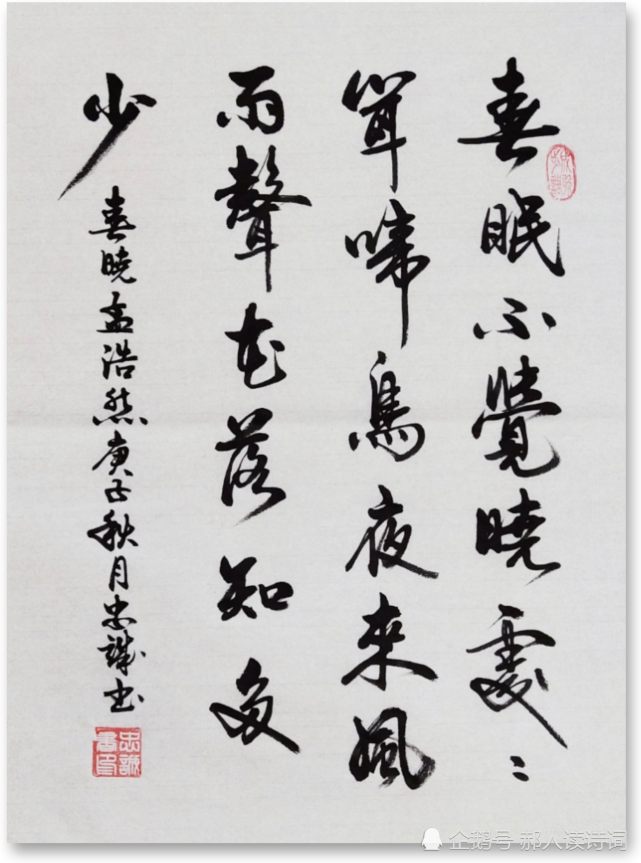 春眠不覺曉處〻
聞啼鳥夜來風
雨聲花落知多
少
春曉孟浩然庚子秋月忠誠书
忠誠書印
企鹅号 郝人读诗词